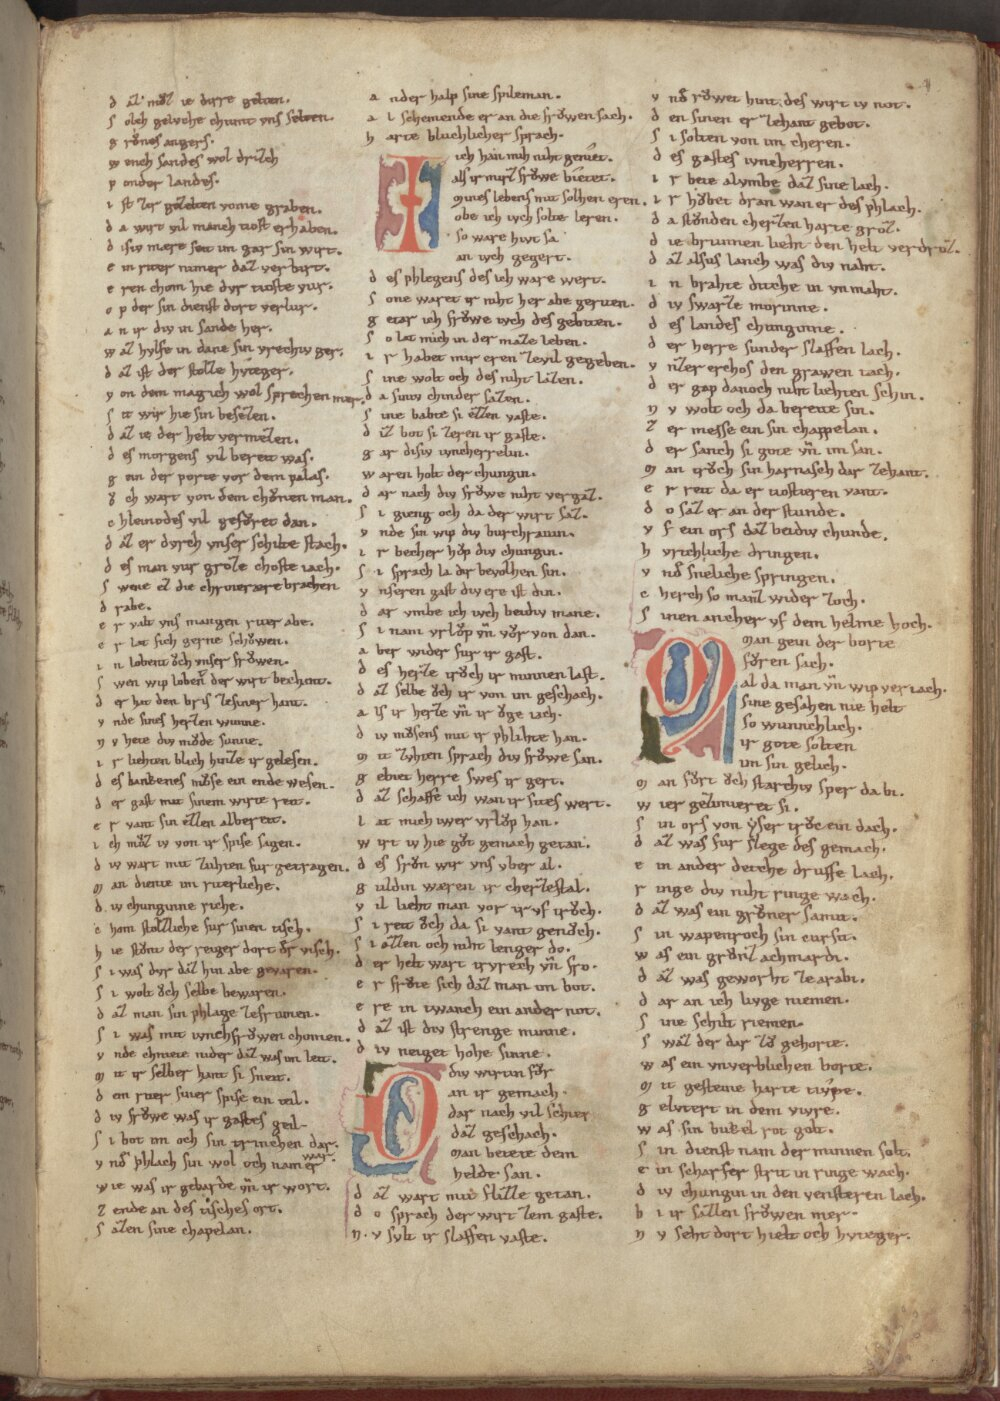 d az moz ie dirre gelten.
S olch gelvche chumt vns selten.
g rones angers.
w enich sandes wol drizch
p onder landes.
i st zer gezelten vome graben.
d a wirt vil manch tiost erhaben.
d isiv mere seit im gar sin wirt.
e in riter nimer daz verbirt.
e ren chom hie dvr tioste vur.
o p der sin dienst dort verlur.
a n ir div in sande her.
w az hylfe in dane sin vrechiv ger.
d az ist der stolze hyteger.
v on dem mag ich wol sprechen mer.
S it wir hie sin besezen.
d az ie der helt vermezen.
d es morgens vil bereit was.
g ein der porte vor dem palas.
o ch wart von dem chonen man.
c hleinodes vil geforet dan.
d az er dvrch vnser schilte stach.
d es man vur groze choste iach.
S wene ez die chroierære brachen
d rabe.
e r valt vns mangen riter abe.
e r lat sich gerne schowen.
i n lobent och vnser frowen.
S wen wip lobent der wirt bechant.
d er hat den bris ze siner hant.
v nde sines herzen wunne.
n v hete div mode sunne.
i r liehten blich hinze ir gelesen.
d es bankenes mose ein ende wesen.
d er gast mit sinem wirte reit.
e r vant sin ezzen albereit.
i ch moz iv von ir spise sagen.
d iv wart mit zuhten fur getragen.
m an diente im riterliche.
d iv chunginne riche.
c hom stolzliche fur sinen tisch.
h ie stont der reiger dort der visch.
S i was dvr daz hin abe gevaren.
S i wolt och selbe bewaren.
d az man sin phlage ze frumen.
S i was mit ivnchfrowen chomen.
v nde chniete nider daz was im leit.
m it ir selber hant si sneit.
d em riter siner spise ein teil.
d iv frowe was ir gastes geil
S i bot im och sin trinchen dar.
v nd phlach sin wol och nam er war.
w ie was ir gebarde vn ir wort.
z ende an des tisches ort.
S azen sine chapelan.
a nder halp sine spileman.
a l schemende er an die frowen sach.
h arte bluchlicher sprach.
I ich han mih niht genietet.
als ir mirz frowe bietet.
mines lebens mit solhen eren.
obe ich ivch solte leren.
so ware hivt sa
an ivch gegert.
d es phlegens des ich ware wert.
S one waret ir niht her abe geriten.
g etar ich frowe ivch des gebiten.
S o lat mich in der maze leben.
i r habet mir eren zevil gegeben.
S ine wolt och des niht lazen.
d a siniv chinder sazen.
S ine babte si ezzen vaste.
d iz bot si zeren ir gaste.
g ar disiv ivncherrelin.
w aren holt der chungin.
d ar nach div frowe niht vergaz.
S i gieng och da der wirt saz.
v nde sin wip div burchravin.
i r becher hop div chungin.
S i sprach la dir bevolhen sin.
v nseren gast div ere ist din.
d ar vmbe ich ivch beidiv mane.
S i nam vrlop vn vor von dan.
a ber wider fur ir gast.
d es herze troch ir minnen last.
d az selbe och ir von im geschach.
a ls ir herze vn ir oge iach.
d iv mosens mit ir phlihte han.
m it zvhten sprach div frowe san.
g ebiet herre swes ir gert.
d az schaffe ich wan ir sites wert.
l at mich iwer vrlop han.
w irt iv hie got gemach getan.
d es fron wir vns vber al.
g uldin wæren ir cherzestal.
v il lieht man vor ir vf troch.
S i reit och da si vant genoch.
S i azzen och niht lenger do.
d er helt wart trvrech vn fro.
e r frote sich daz man im bot.
e re in twanch ein ander not.
d az ist div strenge minne.
d iv neiget hohe sinne.
D div wirtin for
an ir gemach.
dar nach vil schier
daz geschach.
man bette dem
helde san.
d az wart mit flizze getan.
d o sprach der wirt zem gaste.
n v sylt ir slaffen vaste.
v nd rowet hint. des wirt iv not.
d en sinen er zehant gebot.
S i solten von im cheren.
d es gastes ivncherren.
i r bete alvmbe daz sine lach.
i r hobet dran wan er des phlach.
d a stonden cherzen harte groz.
d ie brunnen lieht den helt verdroz.
d az alsus lanch was div naht.
i n brahte dicche in vnmaht.
d iv swarze morinne.
d es landes chunginne.
d er herre sunder slaffen lach.
v nzer erchos den grawen tach.
d er gap danoch niht liehten schin.
n v wolt och da bereite sin.
z er messe ein sin chappelan.
d er sanch si gote vn im san.
m an troch sin harnasch dar zehant.
e r reit da er tiostieren vant.
d o saz er an der stunde.
v f ein ors daz beidiv chunde.
h vrtchliche dringen.
v nd snelliche springen.
e herch so manz wider zoch.
S inen ancher vf dem helme hoch.
M man gein der borte
foren sach.
al da man vn wip veriach.
sine gesahen nie helt
so wunnchlich.
ir gote solten
im sin gelich.
m an fort och starchiv sper da bi.
w ier gezimieret si.
S in ors von yser troc ein dach.
d az was fur slege des gemach.
e in ander decche druffe lach.
r inge div niht ringe wach.
d az was ein groner samit.
S in wapenroch sin cursit.
w as ein gronz achmardi.
d az was geworht ze arabi.
d ar an ich livge niemen.
S ine schilt riemen.
S waz der dar zo gehorte.
w as ein vnverblichen borte.
m it gesteine harte tivre.
g elvtert in dem vivre.
w as sin bukel rot golt.
S in dienst nam der minnen solt.
e in scharfer strit in ringe wach.
d iv chungin in den vensteren lach.
b i ir sazen frowen mer.
n v seht dort hielt och hyteger.